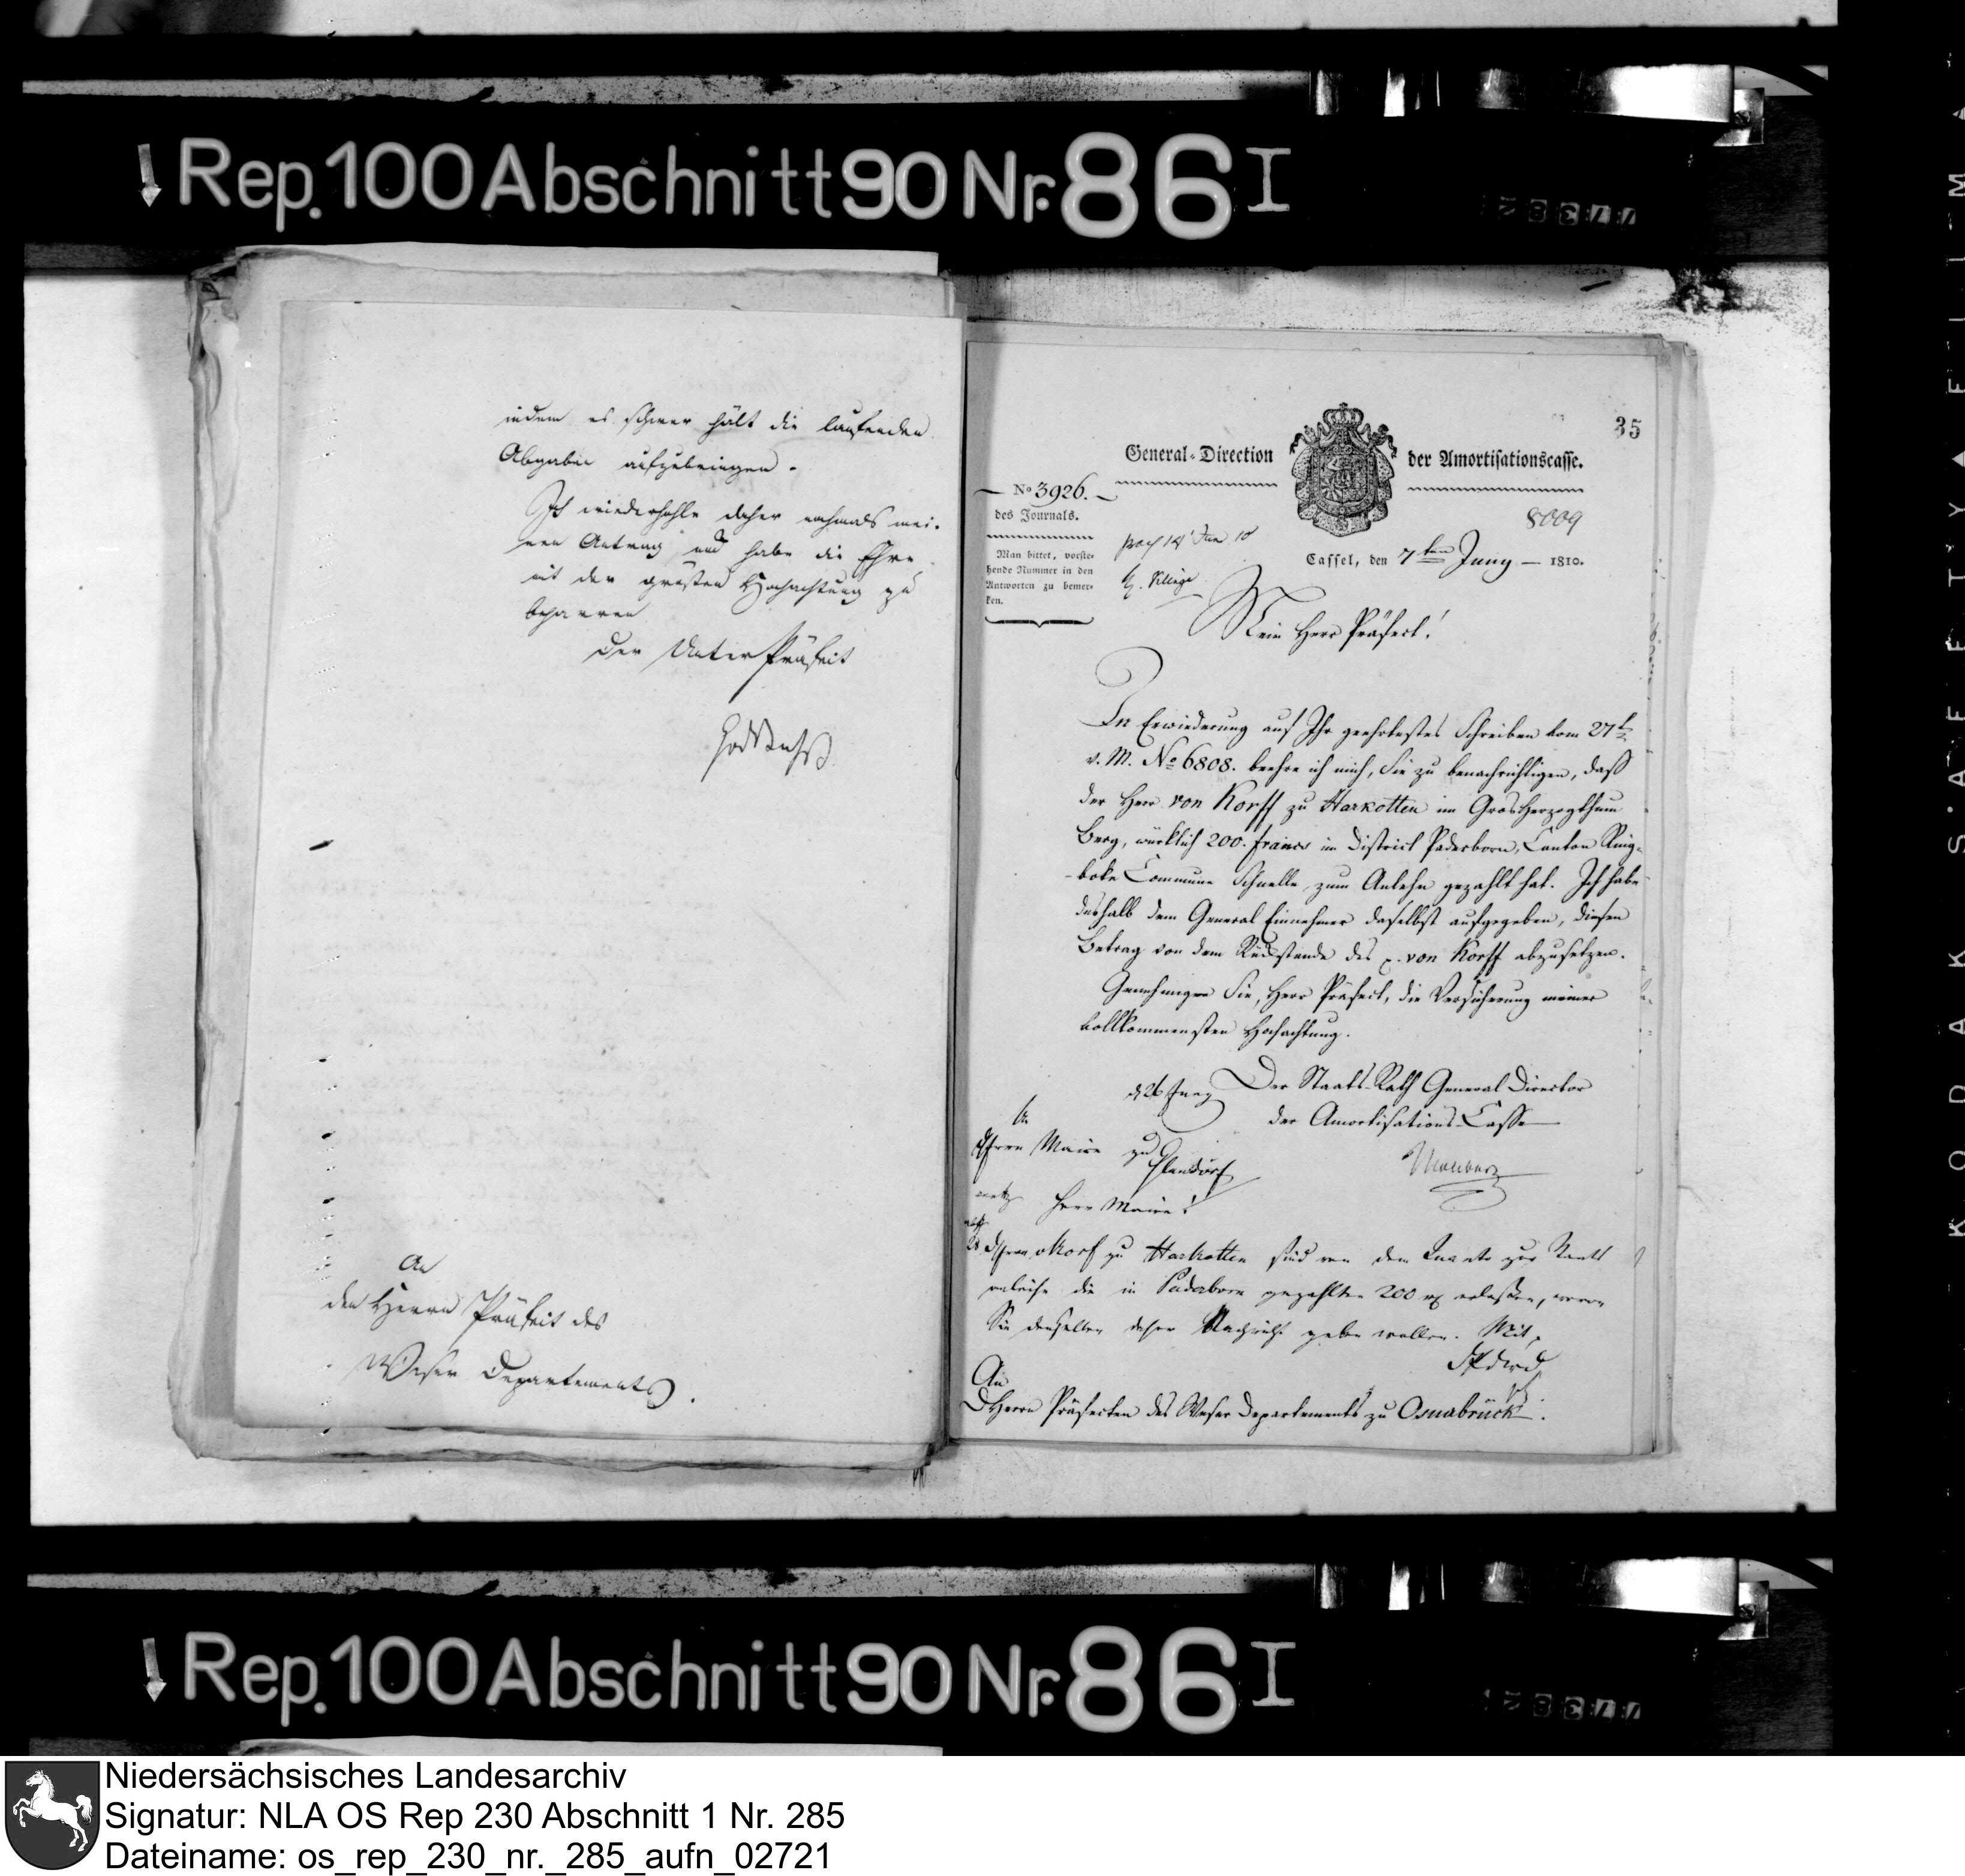 Rep. 100 Abschnitt 90 Nr. 86 I
indem es schwer hält die laufenden
Abgaben aufzubringen.
Ich wiederhohle daher nochmals mei-
nen Antrag und habe die Ehre
mit der grösten Hochachtung zu
beharren
Der Unter Präfect
An
den Herrn Präfect des
Weser Departements.
35
General-Direction der Amortisationscasse.
No 3926.
des Journals.
Man bittet, vorste-
hende Nummer in den
Antworten zu bemer-
ken.
8009
Cassel, den 7ten Juny – 1810.
Mein Herr Präfect!
In Erwiederung auf Ihr geehrtestes Schreiben vom 27t
v. M. No 6808. beehre ich mich, Sie zu benachrichtigen, daß
der Herr von Korff zu Harkotten im Grosherzogthum
Berg, würklich 200. francs im District Paderborn, Canton Ring-
boke Commune Schnelle, zum Anlehn gezahlt hat. Ich habe
deshalb dem General Einnehmer daselbst aufgegeben, diesen
Betrag von dem Rückstande des p. von Korff abzusetzen.
Genehmigen Sie, Herr Präfect, die Versicherung meiner
vollkommensten Hochachtung.
Der Staats-Rath General Director
der Amortisations-Casse
d 26 Juny
An
Herrn Maire zu
Herr Maire!
Korf zu Harkotten sind von dem Quanto zur Staats
anleihe die in Paderborn gezahlten 200 erlaßen, wovon
Sie denselben daher Nachricht geben wollen. Mit
An
D Herrn Präfecten des Weser Departements zu Osnabrück.
Rep. 100 Abschnitt 90 Nr. 86 I
KODAK SAFETY FILM
Niedersächsisches Landesarchiv
Signatur: NLA OS Rep 230 Abschnitt 1 Nr. 285
Dateiname: os_rep_230_nr._285_aufn_02721